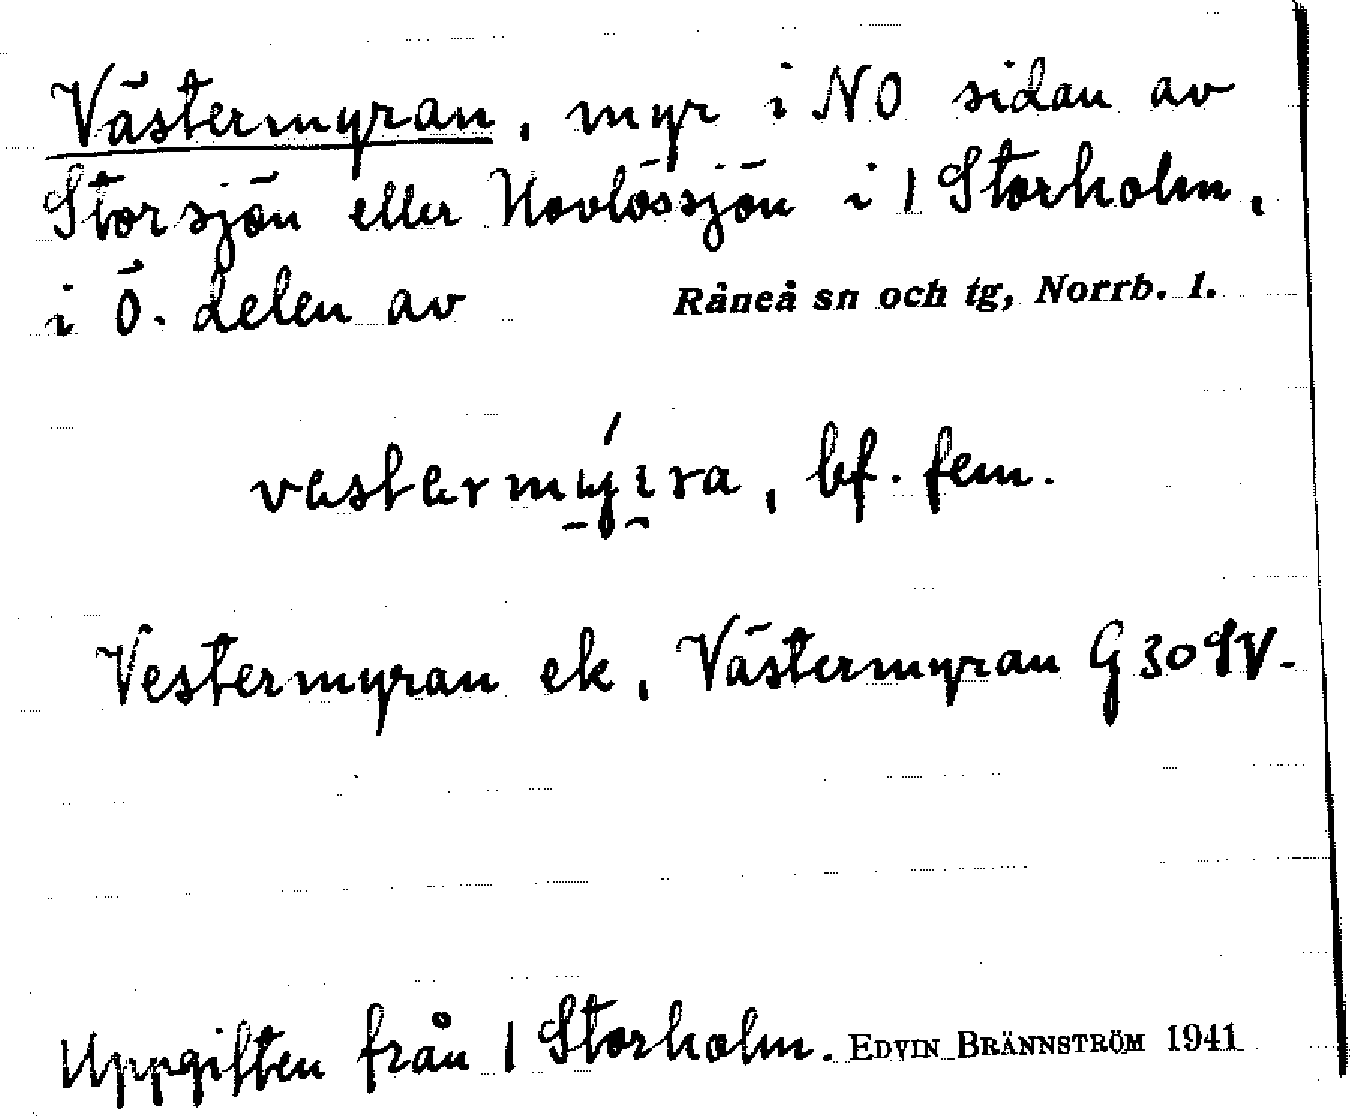 Västermyran, myr i NO sidan av
Storsjön eller Hovlössjön i 1 Storholm,
i Ö. delen av Råneå sn och tg, Norrb. l.
bf. fem.
Vestermyran ek, Västermyran G 30 SV-
Uppgiften från 1 Storholm. EDVIN BRÄNNSTRÖM 1941